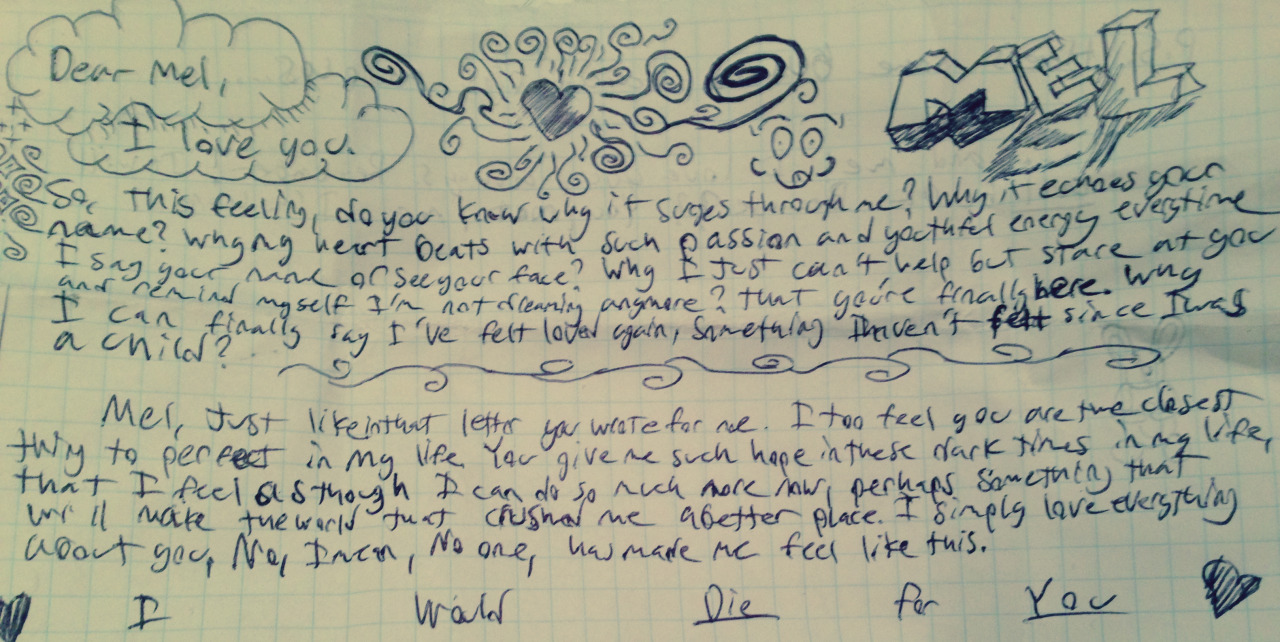 Dear Mel,
MEL
I love you.
So, this feeling, do you know why it surges through me? Why it echoes your
name? Why my heart beats with such passion and youthful energy everytime
I say your name or see your face? Why I just can't help but stare at you
and remind myself I'm not dreaming anymore? that you're finally here. Why
I can finally say I've felt loved again, something I haven't felt since I was
a child?
Mel, Just like in that letter you wrote for me. I too feel you are the closest
thing to perfect in my life. You give me such hope in these dark times in my life,
that I feel as though I can do so much more now, perhaps something that
will make the world that crushed me a better place. I simply love everything
about you, No, I mean, No one, has made me feel like this.
I Would Die for You